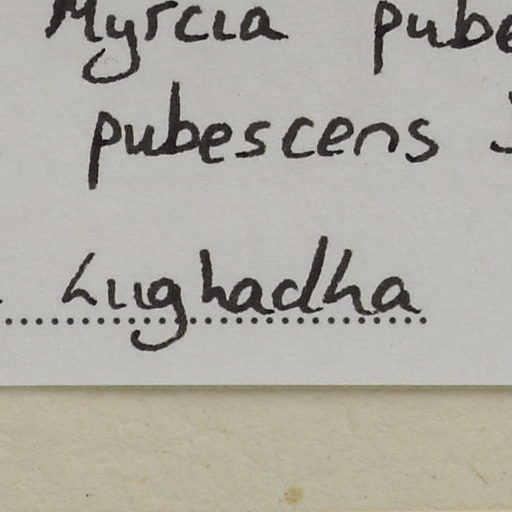 Myrcia pube
pubescens
Lughadha